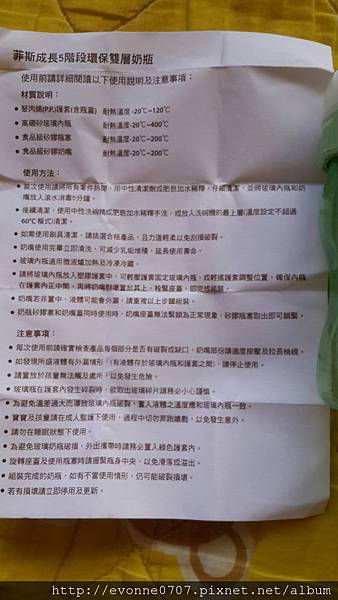 菲斯成長5階段環保雙層奶瓶
使用前請詳細閱讀以下使用說明及注意事項：
材質說明：
• 聚丙烯(P.P.)護套(含瓶蓋) 耐熱溫度-20℃~120℃
• 高硼矽玻璃內瓶 耐熱溫度-20℃~400℃
• 食品級矽膠瓶塞 耐熱溫度-20℃~200℃
• 食品級矽膠奶嘴 耐熱溫度-20℃~200℃
使用方法：
• 首次使用請將所有零件熱開，用中性清潔劑或肥皂加水稀釋，仔細清潔，並將玻璃內瓶和奶
嘴放入滾水消毒5分鐘。
• 後續清潔，使用中性洗碗精或肥皂加水稀釋手洗，或放入洗碗機的最上層(溫度設定不超過
60℃程式)清潔。
• 如需使用刷具清潔，請挑選合格產品，且力道輕柔以免刮損破裂。
• 奶嘴使用完畢立即清洗，可減少乳垢堆積，延長使用壽命。
• 玻璃內瓶適用微波爐加熱及冷凍冷藏。
• 請將玻璃內瓶放入塑膠護套中，可輕壓護套固定玻璃內瓶，或輕搖護套調整位置，確保內瓶
在護套內正中間。再將奶嘴對準置於其上，栓緊座蓋，即完成組裝。
• 奶嘴若非置中，液體可能會外漏，請重複以上步驟組裝。
• 奶瓶矽膠塞和奶嘴蓋同時使用時，奶嘴座蓋無法鎖緊為正常現象，矽膠瓶塞取出即可鎖緊。
注意事項：
• 每次使用前請確實檢查產品每個部分是否有破裂或缺口，奶嘴部份請適度按壓及拉長檢視。
• 如發現所盛液體有外漏情形，(有液體存於玻璃內瓶和護套之間)，請停止使用。
• 請置放於孩童無法觸及處所，以免發生危險。
• 玻璃瓶在護套內發生碎裂時，欲取出玻璃碎片請務必小心謹慎。
• 為避免溫差過大而導致玻璃內瓶破裂，置入液體之溫度應和玻璃內瓶一致。
• 寶寶及孩童請在成人監護下使用，過程中切勿奔跑嬉戲，以免發生意外。
• 請勿在睡眠狀態下使用。
• 為避免玻璃奶瓶破損，外出攜帶時請務必置入綠色護套內。
• 旋轉座蓋及使用瓶塞時請握緊瓶身中央，以免滑落或溢出。
• 組裝完成的奶瓶，如有不當使用情形，仍可能破裂損壞。
• 若有損壞請立即停用及更新。
http://evonne0707.pixnet.net/album